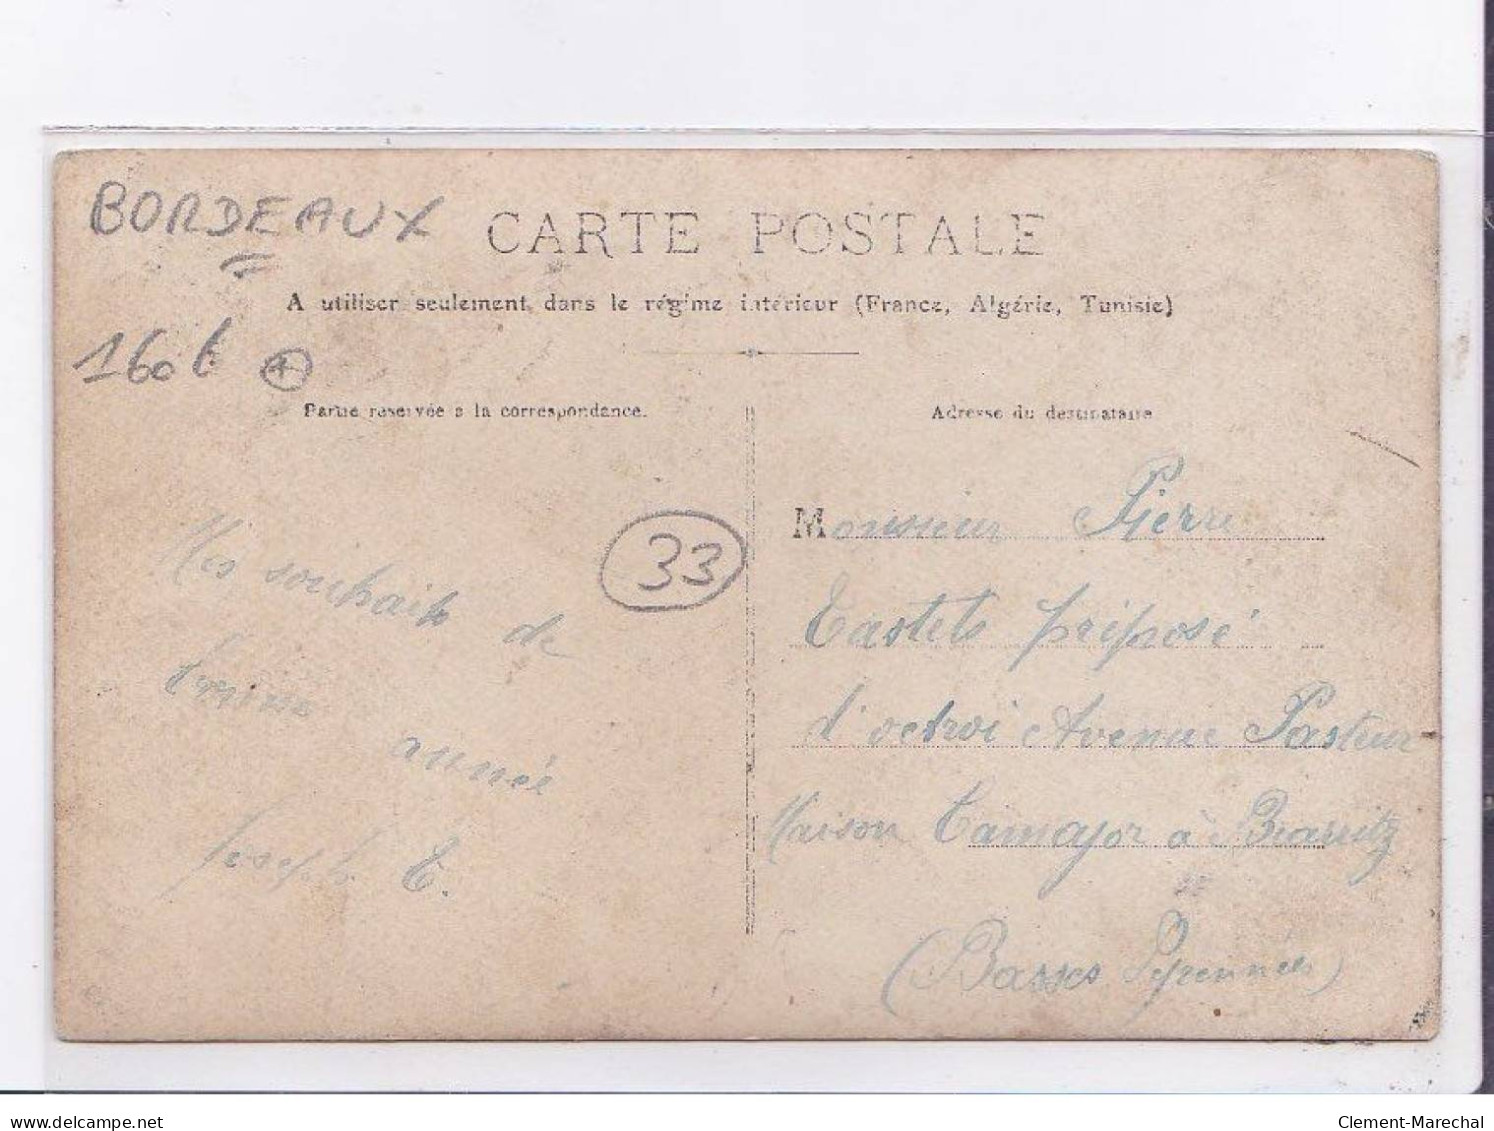 BORDEAUX
CARTE POSTALE
A utiliser seulement dans le régime intérieur (France, Algérie, Tunisie)
160€
Partie réservée à la correspondance.
Adresse du destinataire
33
Mes souhaits de
bonne
année
Joseph T.
Monsieur Pierre
Tastets préposé
d'octroi Avenue Pasteur
Maison Tamajor à Biarritz
(Basses Pyrennées)
delcampe.net
Clement-Marechal